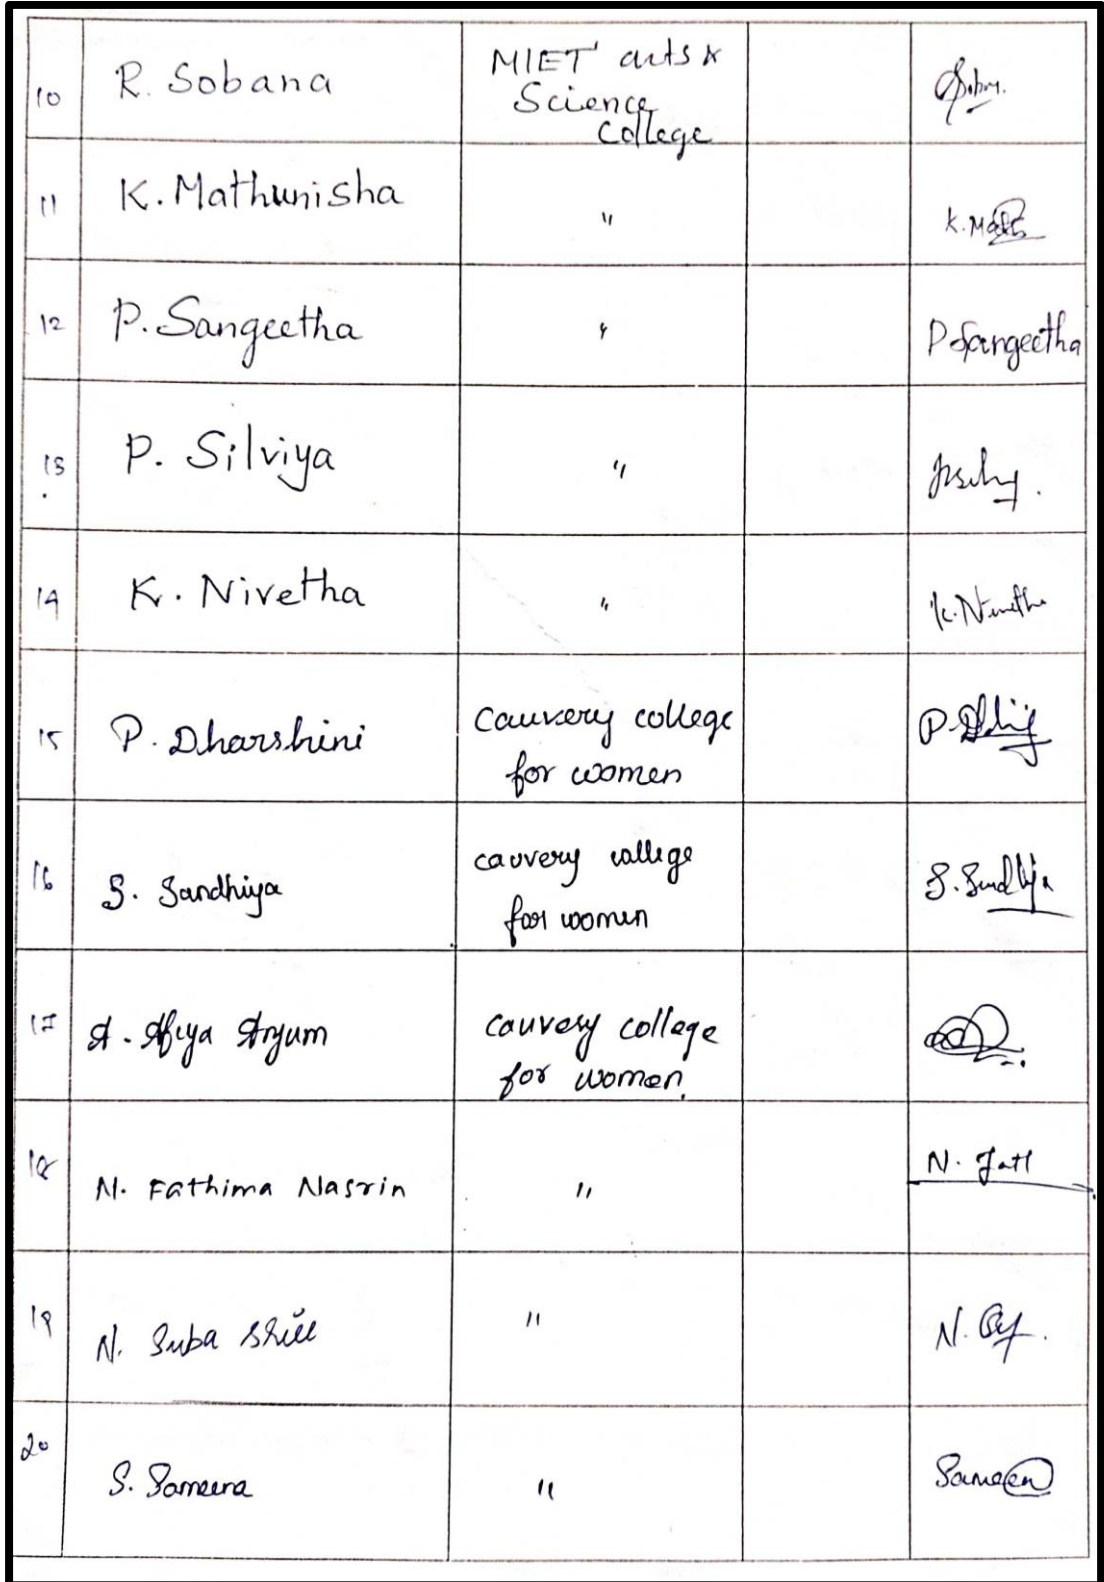 10 R. Sobana MIET arts &
Science
College
11 K. Mathunisha "
K. Math
12 P. Sangeetha " P Sangeetha
13 P. Silviya "
14 K. Nivetha " K. Nivetha
15 P. Dharshini Cauvery college
for women
16 S. Sandhiya cauvery college
for women
S. Sandhiya
17 A. Afiya Anjum cauvery college
for women.
18 N. Fathima Nasrin "
N. Fatl
19 N. Suba "
N.
20 S. Sameera "
Sameen